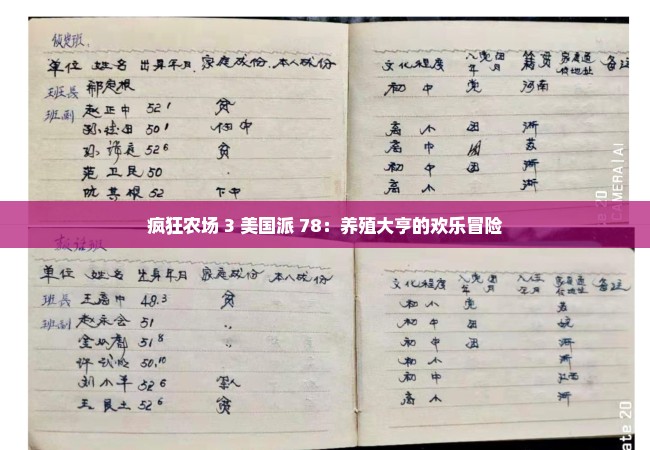 侦察班.
单位 姓名 出身年月 家庭成份 本人成份 文化程度 入党团年月 籍贯 家庭通信地址 备注
班长 祁定根 初中 党 河南
班副 赵正中 52 1 贫
孙 田 50 1 中 高小 团 浙
孙 庭 52 6 贫 高中 苏
范卫民 50 初中 团 浙
根 52 下中 高小 浙
疯狂农场 3 美国派 78：养殖大亨的欢乐冒险
班
单位 姓名 出身年月 家庭成份 本人成份 文化程度 入党团年月 入伍年月 家庭通信地址 备注
班长 王高中 49.3 贫 初小 党 苏
班副 赵永会 51 〃 初中 团 皖
金 51 8 〃 初中 团 浙
许 50.10 初小 浙
刘小羊 52 6 军人 初中 江西
王良土 52 6 贫 高小 浙
CAMERA | AI
ate 20